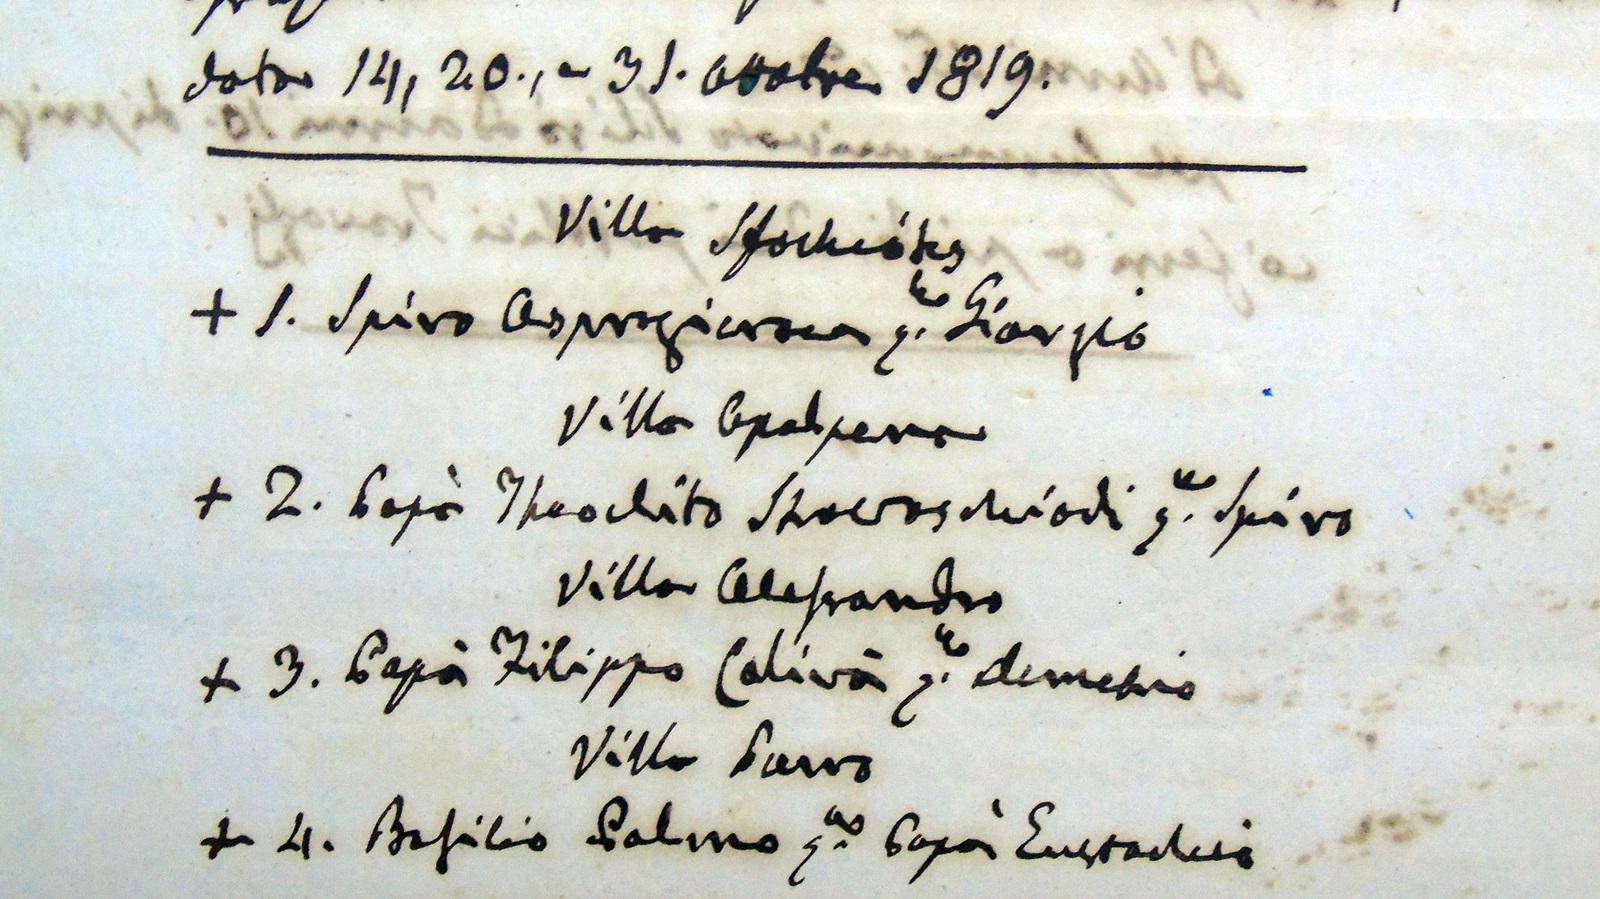 data 14, 20., e 31. Ottobre 1819.
Villa Sfachiótes
+ 1. Spiro Asprogieraca q.m Giorgio
Villa Apolpena
+ 2. Papà Theoclito Stavraschiadi q.m Spiro
Villa Alessandro
+ 3. Papà Filippo Calivà q.m Demetrio
Villa Parvo
+ 4. Basilio Palmo q.m Papà Eustachio